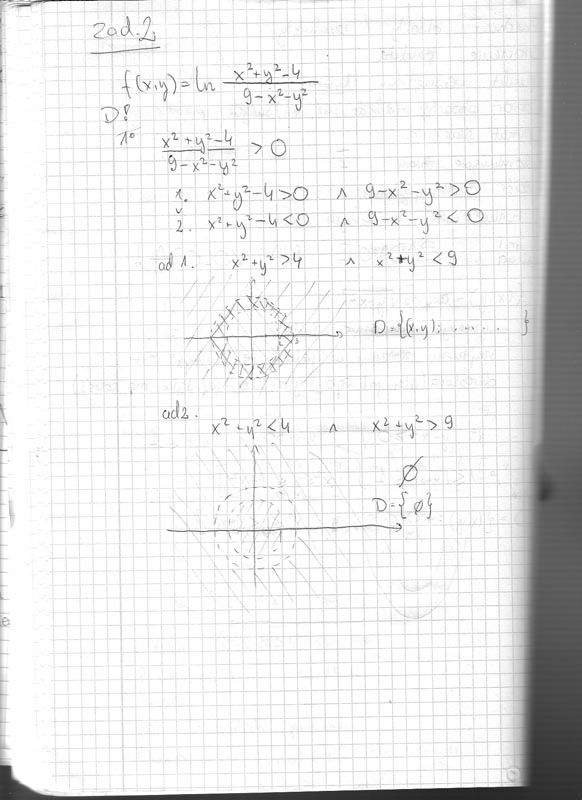 zad. 2.
f(x,y) = ln x²+y²-4 / 9-x²-y²
D!
1° x²+y²-4 / 9-x²-y² > 0
1. x²+y²-4>0 ∧ 9-x²-y²>0
v
2. x²+y²-4<0 ∧ 9-x²-y²<0
ad 1. x²+y²>4 ∧ x²+y²<9
2 3
D={(x,y): ....... }
ad 2.
x²+y²<4 ∧ x²+y²>9
∅
D={∅}